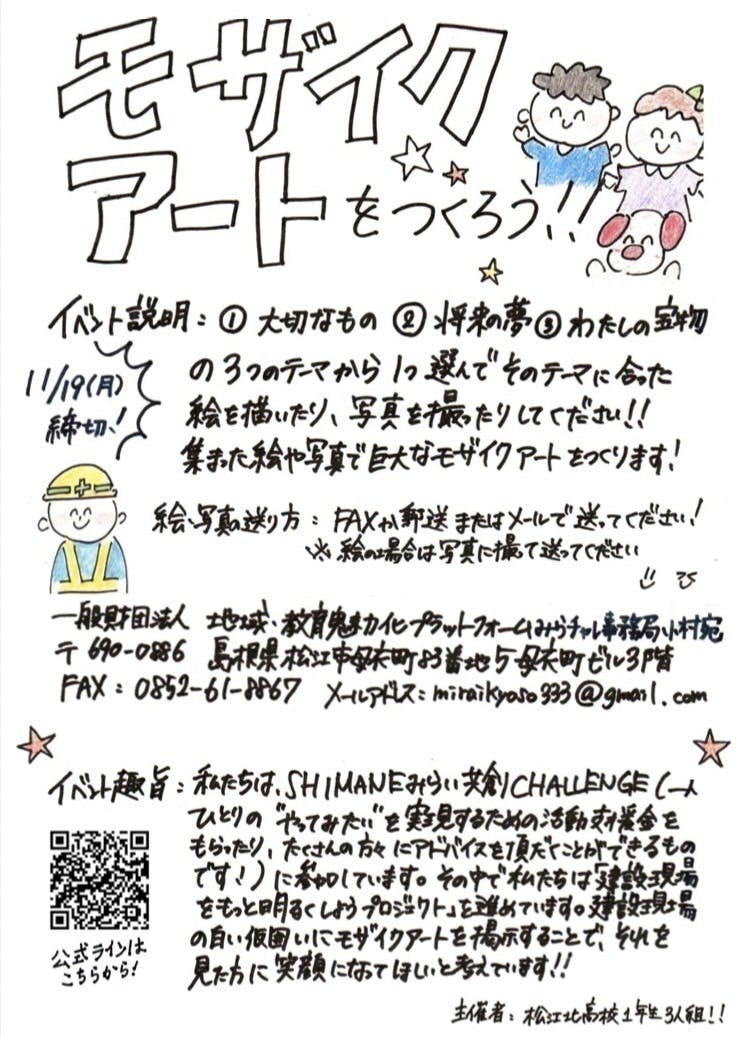 モザイク
アートをつくろう!!
イベント説明：① 大切なもの ② 将来の夢 ③ わたしの宝物
の3つのテーマから1つ選んでそのテーマに合った
絵を描いたり、写真を撮ったりしてください!!
集まった絵や写真で巨大なモザイクアートをつくります!
11/19(月)
締切!
絵・写真の送り方：FAXか郵送またはメールで送ってください!
※絵の場合は写真に撮って送ってください
一般財団法人 地域・教育魅力化プラットフォームみらチャレ事務局小村宛
〒690-0886 島根県松江市母衣町83番地5母衣町ビル3階
FAX：0852-61-8867 メールアドレス：miraikyoso333@gmail.com
イベント趣旨：私たちは、SHIMANEみらい共創CHALLENGE(一人
ひとりの"やってみたい"を実現するための活動支援金を
もらったり、たくさんの方々にアドバイスを頂だくことができるもの
です!)に参加しています。その中で私たちは「建設現場
をもっと明るくしようプロジェクト」を進めています。建設現場
の白い仮囲いにモザイクアートを掲示することで、それを
見た方に笑顔になってほしいと考えています!!
公式ラインは
こちらから!
主催者：松江北高校1年生3人組!!